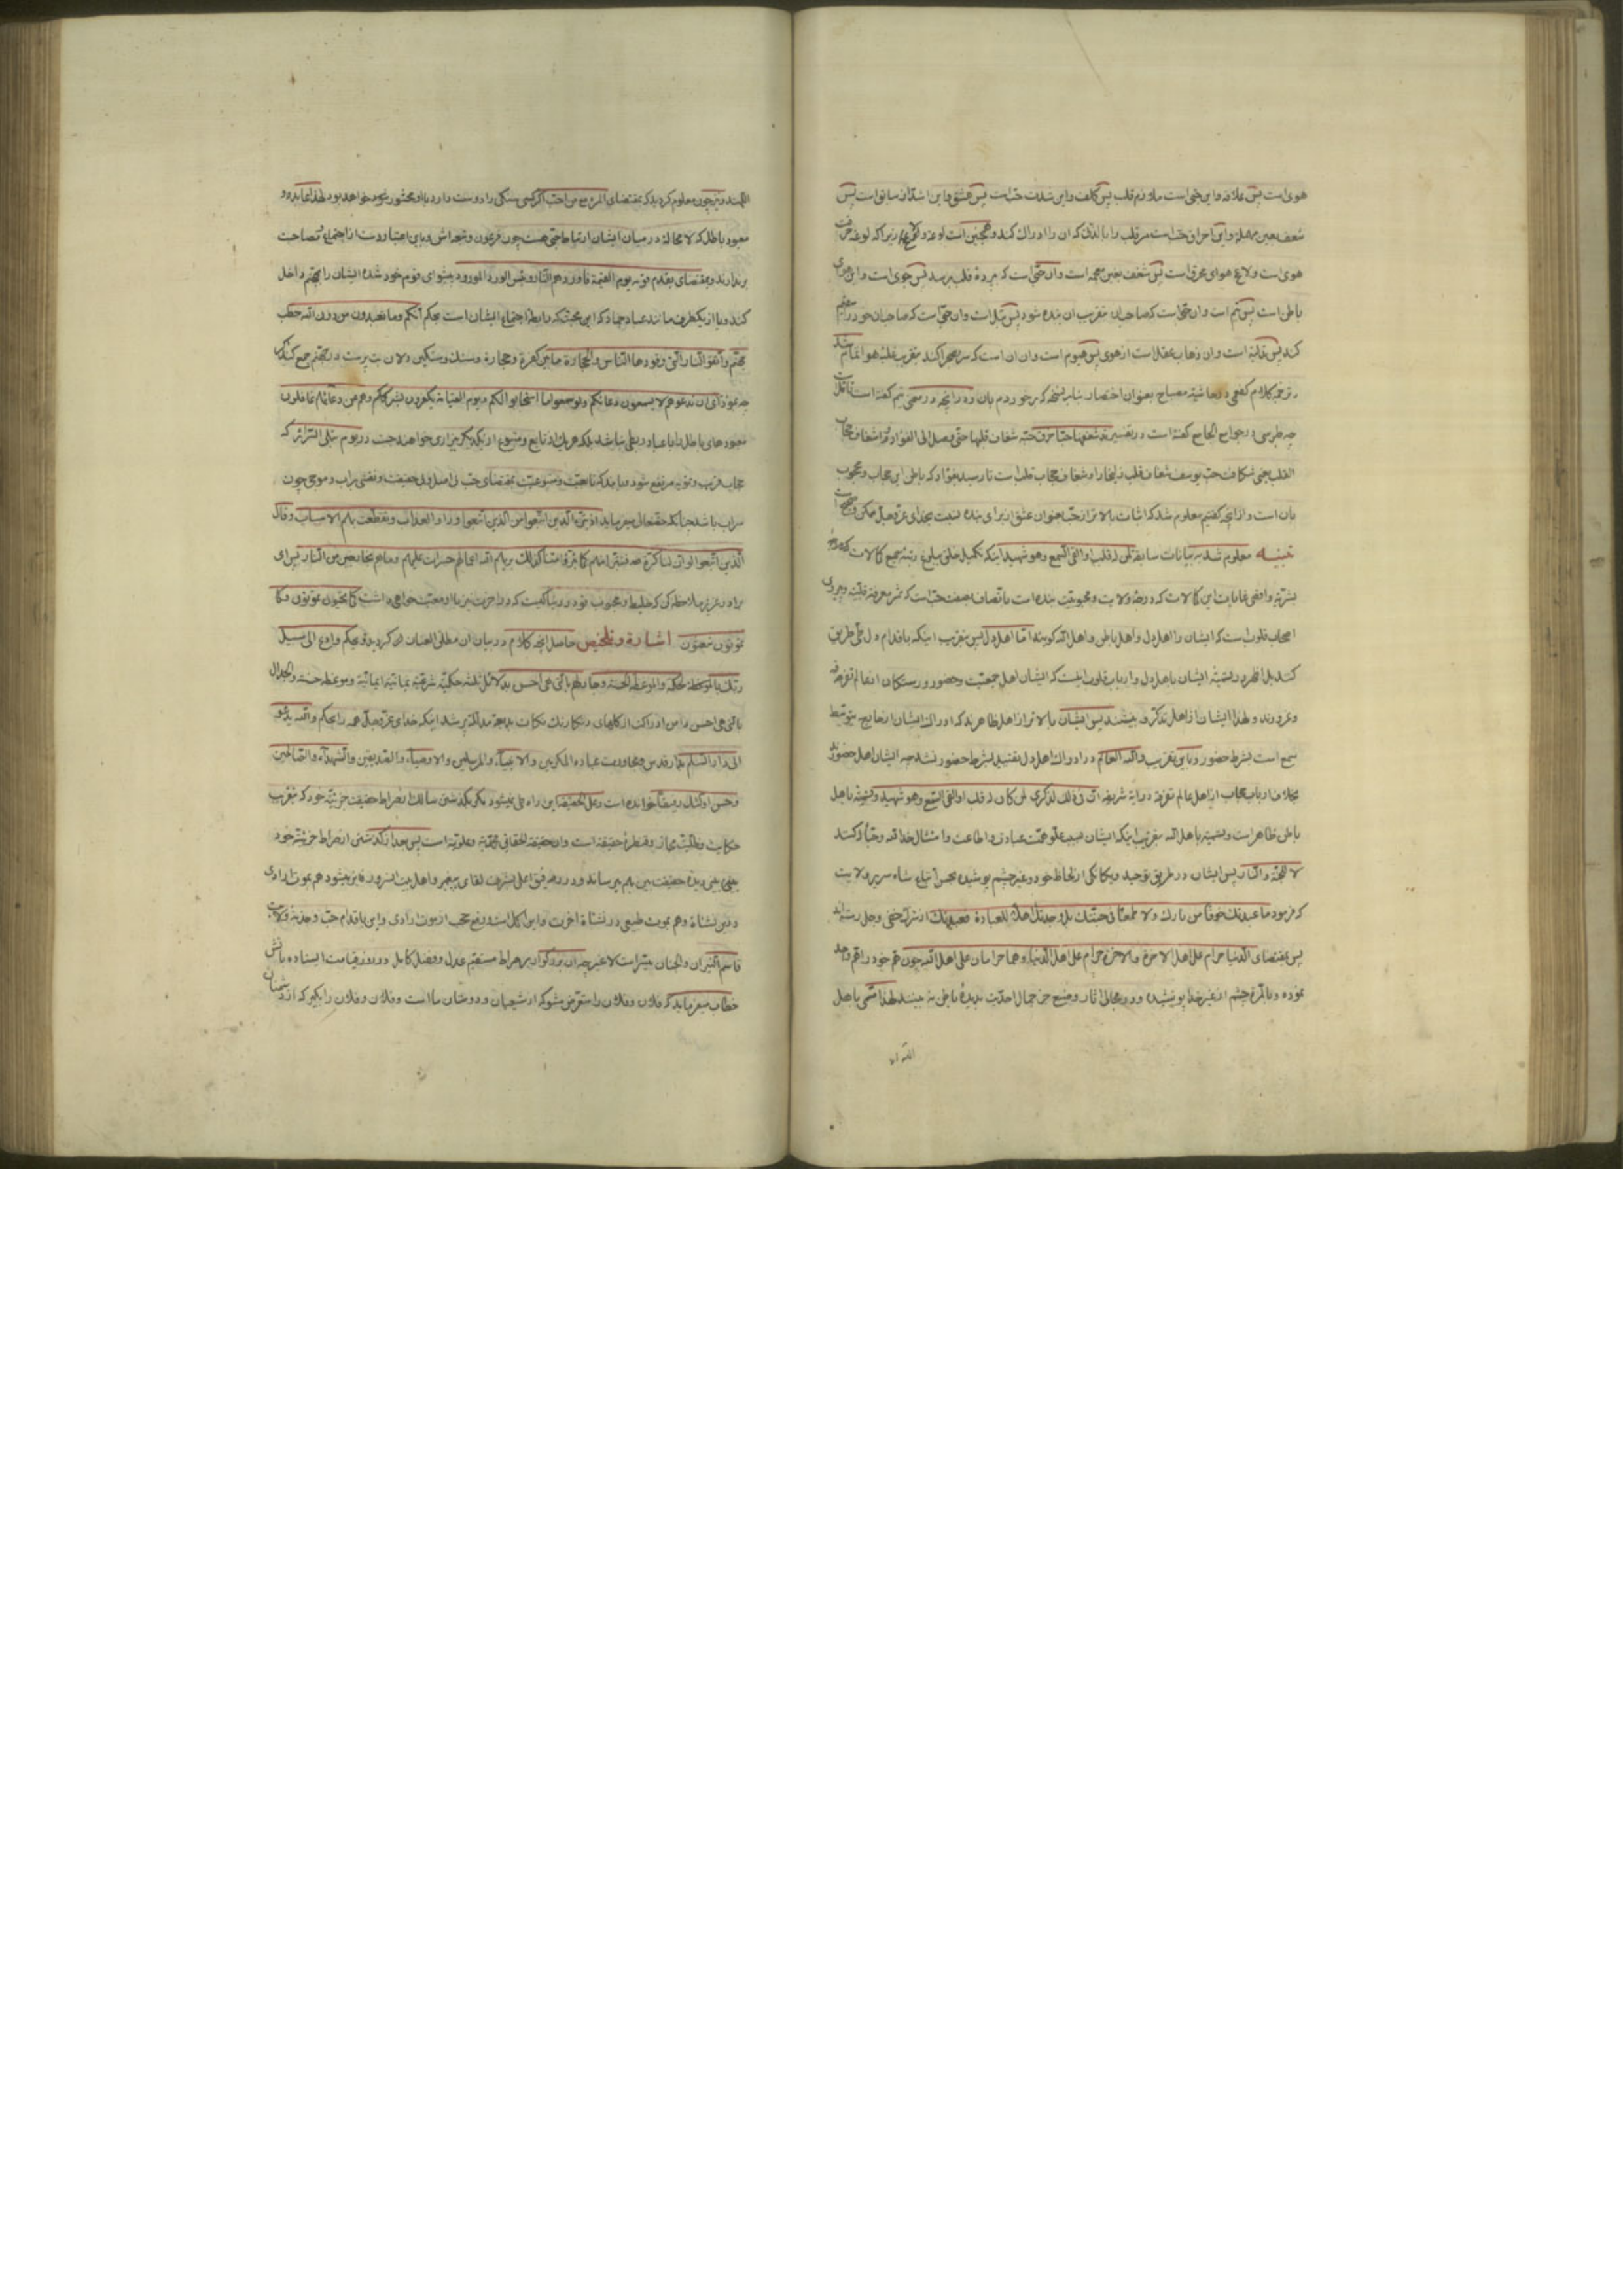 هوی است پس علاقه و این حبی است ملازم قلب پس کلف و این شدت حب است پس عشق و این اشد از سابق است پس
شعف بعین مهمله و این احراق حب است مر قلب را با لذتی که ان را ادراک کند و همچنین است لوعه و زیرا که لوعه حرقت
هوی است و لاعج هوای محرق است پس شغف بغین معجمه است و ان حبی است که بپردهٔ قلب برسد پس جوی است و این هوی
باطن است پس تیم است و ان حبی است که صاحب ان بتقریب ان بنده شود پس تبل است و ان حبی است که صاحب ان خود را سقیم
کند پس تدلیه است و ان ذهاب عقل است از هوی پس هیوم است و ان ان است که سر بصحرا کند بتقریب غلبه هوا تمام شد
ترجمه کلام کفعمی در حاشیهٔ مصباح بعنوان اختصار بنابر نسخه که برخوردم بان و در انچه در معنی تیم کفته است تأمل است
چه طبرسی در جوامع الجامع کفته است در تفسیر قد شغفها حبا خرق حبه شغاف قلبها حتی وصل الی الفؤاد و الشغاف حجاب
القلب یعنی شکافت حب یوسف شغاف قلب زلیخا را و شغاف حجاب قلب است تا رسید بفؤاد که باطن این حجاب و محجوب
بان است و از انچه کفتیم معلوم شد که اثبات بالاتر از حب بعنوان عشق از برای بنده نسبت بخدای عز و جل ممکن و صحیح است
تنبیه معلوم شد به بیانات سابقه لمن له قلب او القی السمع و هو شهید اینکه تکمیل خلق ببلوغ رتبهٔ جمیع کالات
بشریه و اقصی غایات این کالات که درجهٔ ولایت و محبوبیت بنده است باتصاف بصفت حب است که ثمر معرفة قلبیه
اصحاب قلوب است که ایشان را اهل دل و اهل باطن و اهل الله کویند اما اهل دل پس بتقریب اینکه باقدام دل طی طریق
کنند بل اقدم و تسمیهٔ ایشان باهل دل و ارباب قلوب اینست که ایشان اهل جمعیت و حضور و رستکان از عالم تفرقه
و غرورند و لهذا ایشان از اهل تذکر و بینشند پس ایشان بالاتر از اهل ظاهرند که ادراک ایشان از حقایق بتوسط
سمع است بشرط حضور و باین تقریب والله العالم در ادراک اهل دل تقیید بشرط حضور نشد چه ایشان اهل حضورند
بخلاف ارباب حجاب از اهل عالم تفرقه در ایهٔ شریفه ان فی ذلک لذکری لمن کان له قلب او القی السمع و هو شهید و تسمیه باهل
باطن ظاهر است و تسمیه باهل الله بتقریب اینکه ایشان بسبب علو همت عبادت و اطاعت و امتثال خدا لله و حبا له کنند
لا للجنة و النار پس ایشان در طریق توحید و یکانکی از لحاظ خود و غیر چشم پوشیده بحسن اتباع شاه سریر ولایت
که فرمود ما عبدتک خوفا من نارک ولا طمعا فی جنتک بل وجدتک اهلا للعبادة فعبدتک از شرک خفی و جلی رسته اند
پس بمقتضای الدنیا حرام علی اهل الاخرة و الاخرة حرام علی اهل الدنیا و هما حرامان علی اهل الله چون هم خود را هم واحد
نموده و بالمره چشم از غیر خدا پوشیده و در مجالی اثار و صنع جز جمال احدیت بدیدهٔ باطن نه بینند لهذا مسمی باهل
اللهند و نیز چون معلوم کردید که بمقتضای المرء مع من احب اکر کسی سنکی را دوست دارد با او محشور خود خواهد بود لهذا عابد و
معبود باطل که لا محاله در میان ایشان ارتباط حبی هست چون فرعون و تبعه اش و باین اعتبار دست از اجتماع و مصاحبت
برندارند و بمقتضای یقدم قومه یوم القیمة فاوردهم النار و بئس الورد المورود پیشوای قوم خود شده ایشان را بجهنم داخل
کند و یا از یکطرف مانند عباد جماد که این محبتکه رابطهٔ اجتماع ایشان است بحکم انکم و ما تعبدون من دون الله حصب
جهنم و اتقوا النار التی وقودها الناس و الحجارة مابین کفره و حجاره و سنک و سنکین دلان بت پرست در جهنم جمع کند
چه بمؤدای ان تدعوهم لا یسمعون دعائکم ولو سمعوا ما استجابوا لکم و یوم القیامة یکفرون بشرککم و هم عن دعائهم غافلون
معبودهای باطل را با عباد ربطی نباشد بلکه هر یک از تابع و متبوع از یکدیکر بیزاری خواهند جست در یوم تبلی السرائر که
حجاب فریب و تمویه مرتفع شود و بیابد که تابعیت و متبوعیت بمقتضای حب بی اصل و بی حقیقت و نقشی براب و موجی چون
سراب باشد چنانکه حقتعالی میفرماید اذ تبرء الذین اتبعوا من الذین اتبعوا و راوا العذاب و تقطعت بهم الاسباب و قال
الذین اتبعوا لو ان لنا کرة فنتبرء منهم کما تبرؤا منا کذلک یریهم الله اعمالهم حسرات علیهم و ما هم بخارجین من النار پس ای
برادر عزیز ملاحظه کن که خلیط و محبوب تو در دنیا کیست که در اخرت نیز با او معیت خواهی داشت کما تحیون تموتون و کما
تموتون تبعثون اشارة و تلخیص حاصل انچه کلام در بیان ان مطلق العنان کردید بحکم و ادع الی سبیل
ربک بالحکمة و الموعظة الحسنة و جادلهم بالتی هی احسن بدلائل ثلثهٔ حکمیه شرقیه یمانیه ایمانیه و موعظه حسنه و الجدال
بالتی هی احسن دامن ادراکت از کلهای رنکارنک نکات بدیعه مدلل پر شد اینکه خدای عز و جل همه را بحکم والله یدعو
الی دار السلم بدار قدس و مجاورت عباده المکرمین و الانبیاء و المرسلین و الاوصیاء و الصدیقین و الشهداء و الصالحین
و حسن اولئک رفیقا خوانده است و علی الحقیقة این راه طی نمیشود مکر بکذشتن سالک از صراط حقیقت جزئیه خود که بتقریب
حکایت و ظلیت مجاز و قنطرهٔ حقیقة است و ان حقیقة الحقائق محمدیه و علویه است پس بعد از کذشتن از صراط جزئیه خود
یعنی دیدهٔ حقیقت بین بهم میرساند و در رفیق اعلی بشرف لقای پیغمبر و اهل بیت السرور فایز میشود هم بموت ارادی
در این نشاة و هم بموت طبیعی در نشاة اخرت و این اکمل است و رفع حجب از موت ارادی و این باقدام حب و جذبهٔ ولایت
قاسم النیران و الجنان میسر است لا غیر چه ان بزرکوار بر صراط مستقیم عدل و فضل کامل در روز قیامت ایستاده باتش
خطاب میفرماید که فلان و فلان را متعرض مشو که از شیعیان و دوستان ما است و فلان و فلان را بکیر که از دشمنان